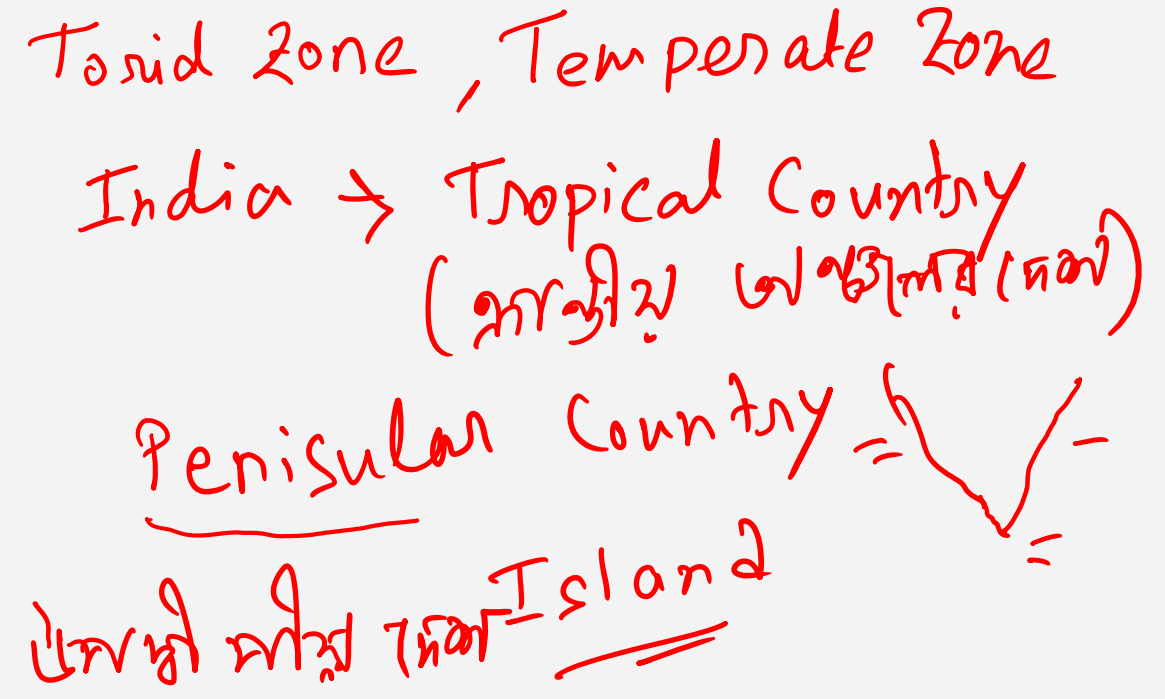 Torid Zone, Temperate Zone
India → Tropical Country
(ক্রান্তীয় দেশ)
Penisular Country
দেশ Island